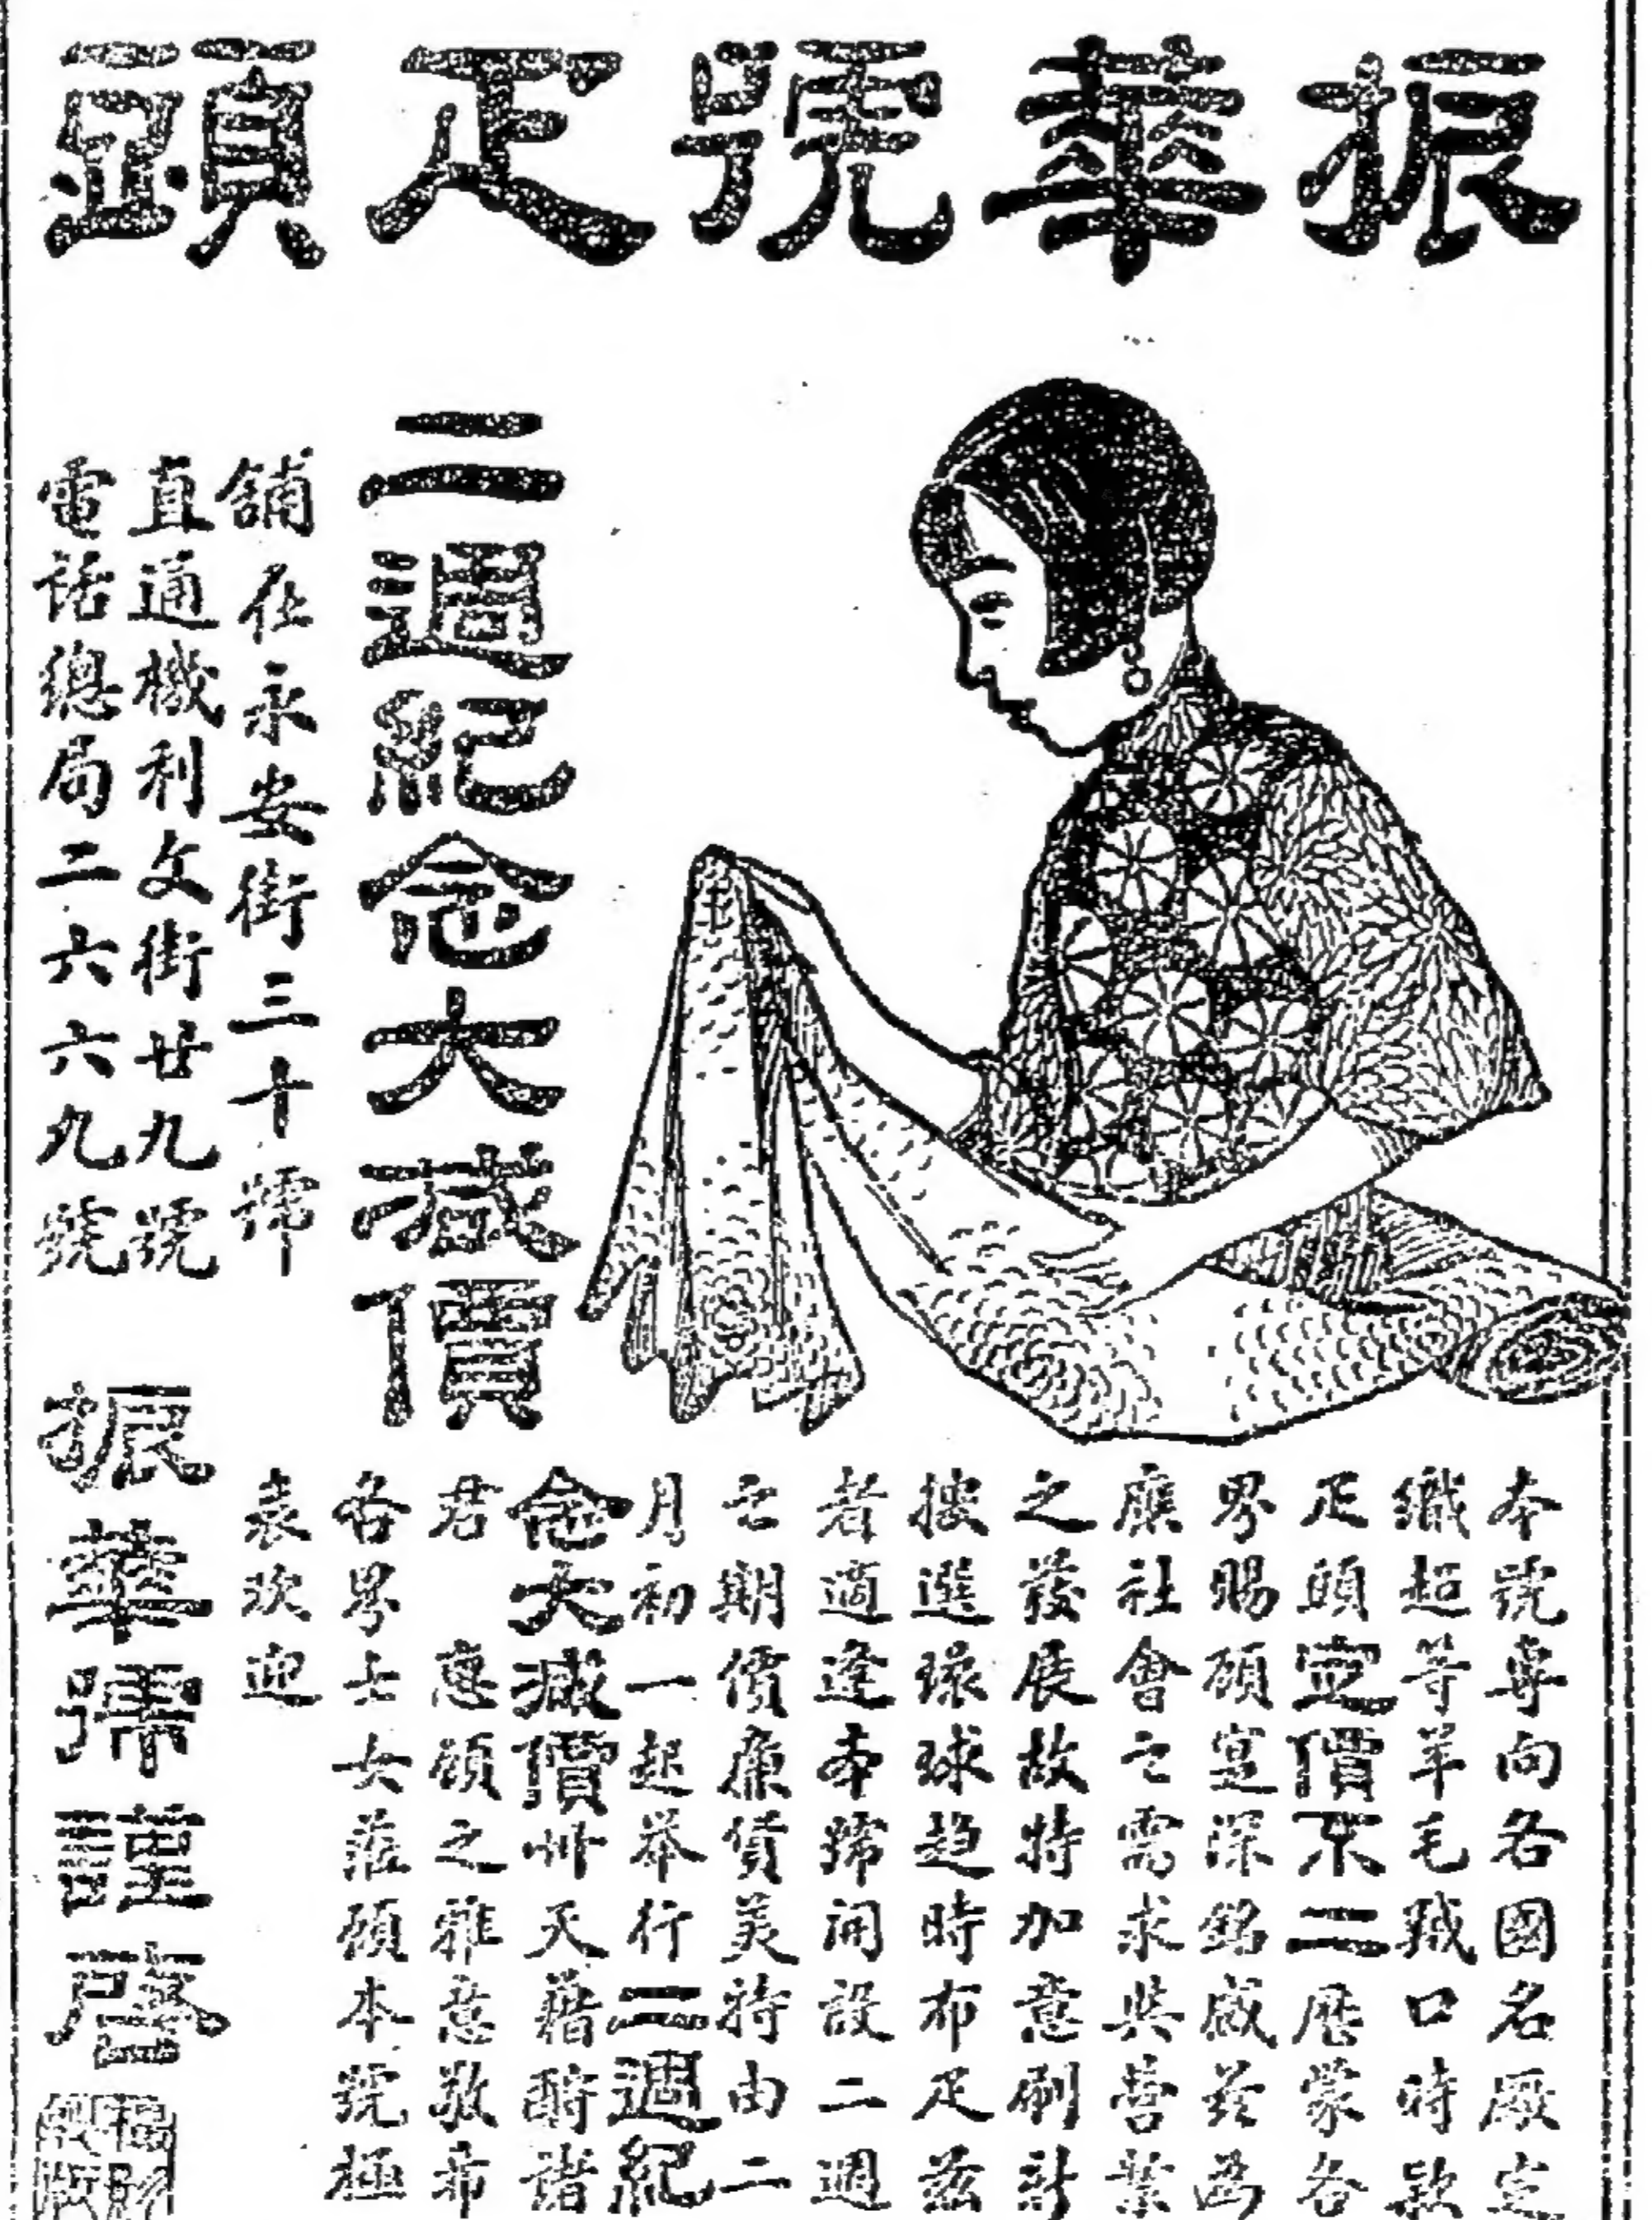 振華號疋頭
二週紀念大減價
舖在永安街三十號
直通機利文街廿九號
電話總局二六六九號
本號專向各國名厰定
織超等羊毛絨口時款
疋頭定價不二歷蒙各
界賜顧寔深銘感茲為
應社會之需求與營業
之發展故特加意刷計
按選環球趋時布疋茲
者適逢本號開設二週
之期價廉貨美特由二
月初一起舉行二週紀
念大減價卅天藉酧諸
君 惠顧之雅意敬希
各界士女蒞顧本號極
表欢迎
振華號謹啓